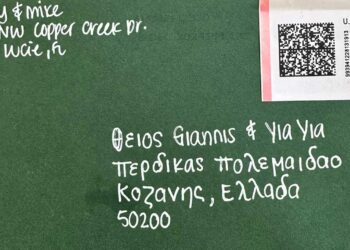 & mike
NW Copper Creek Dr.
Lucie, FL
U.
9939412281319313
Θειος Giannis & Yia Yia
περδικας πολεμαιδαο
Κοζανης, Ελλαδα
50200